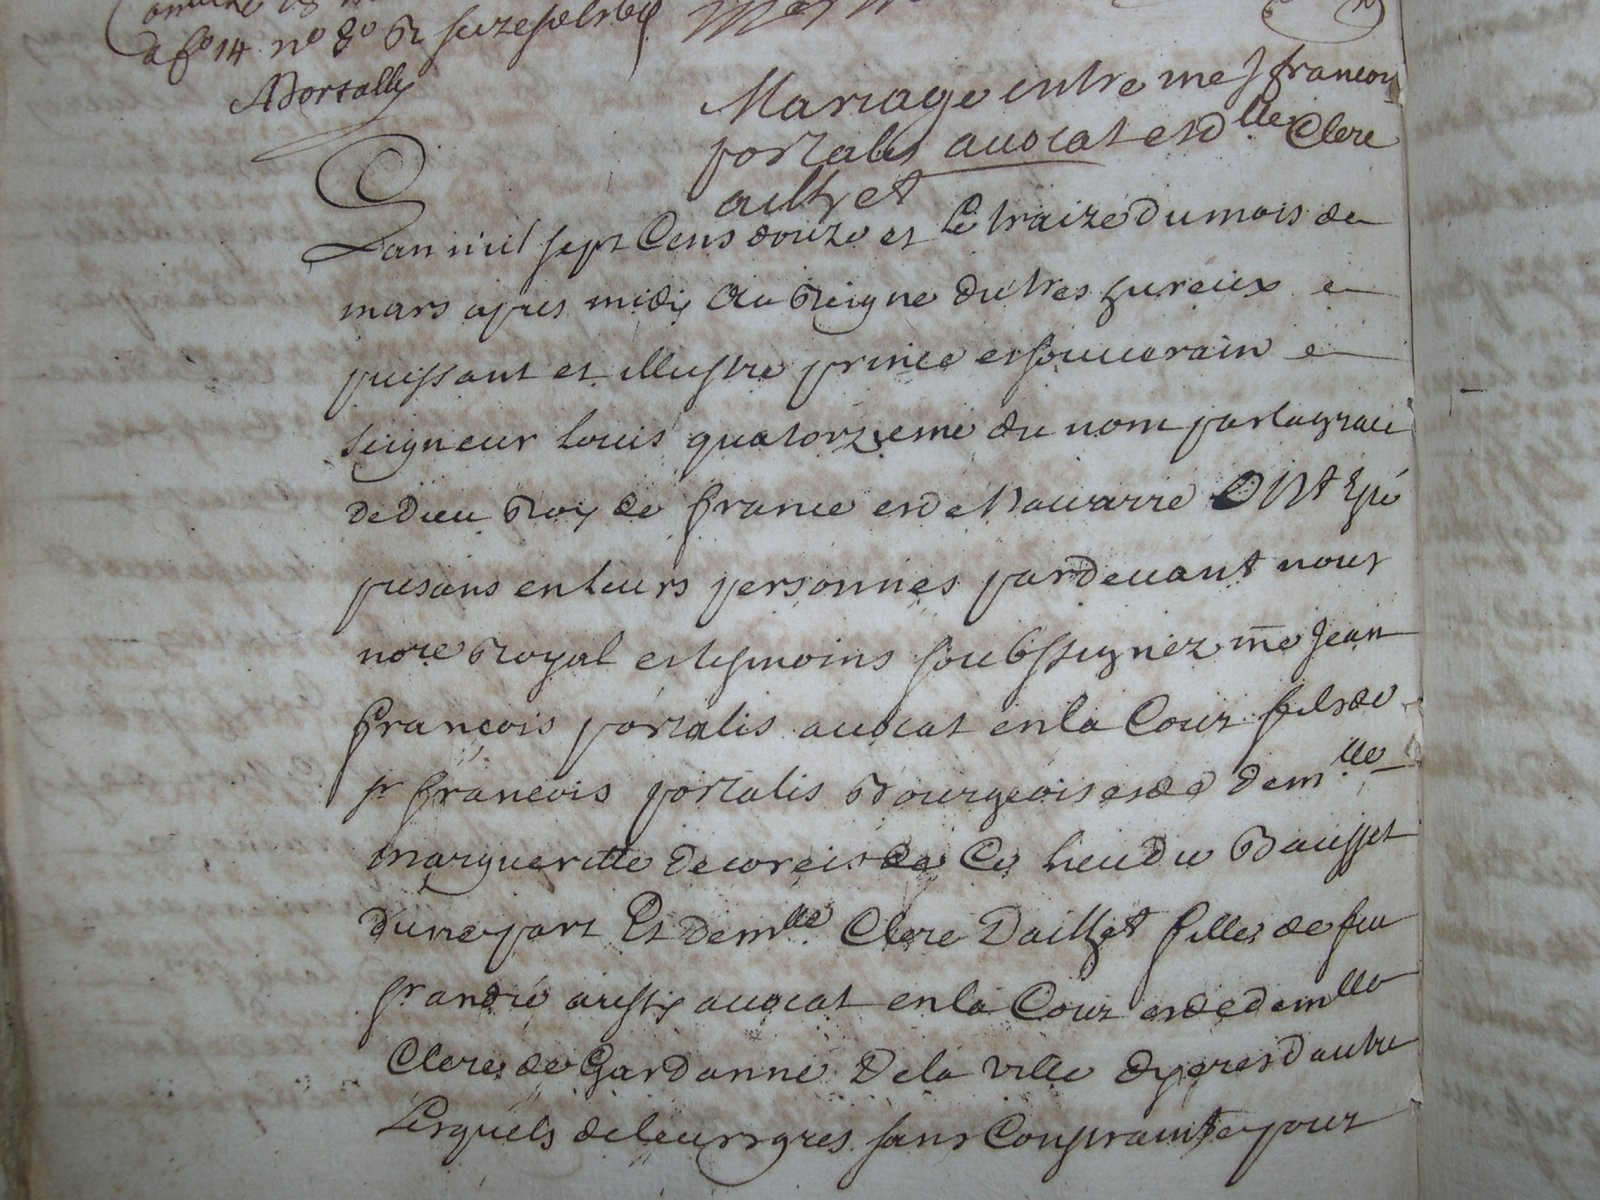 a fo 14 no 8o R seze sols
Mariage entre me J francois
portalis avocat et dlle Clere
Lan mil sept Cens douze et Le traize du mois de
mars apres midy Au Reigne du tres hureux e
puissant et illustre prince et souuerain e
seigneur Louis quatorzieme du nom par la grace
de dieu Roy de france et de Nauarre ONt Espé
pusans en leurs personnes pardeuant nous
nore Royal et tesmoins soubssignez me Jean
françois portalis auocat en la Cour fils de
sr francois portalis Bourgeois et de demlle
margueritte decoreis de Ce lieu du Bausset
dune part Et demlle Clere Daillet filles de feu
sr andré aussy auocat en la Cour et de demlle
Clere de Gardanne De la ville dyeres dautre
Lesquels de leurs gres sans Constrainte pour